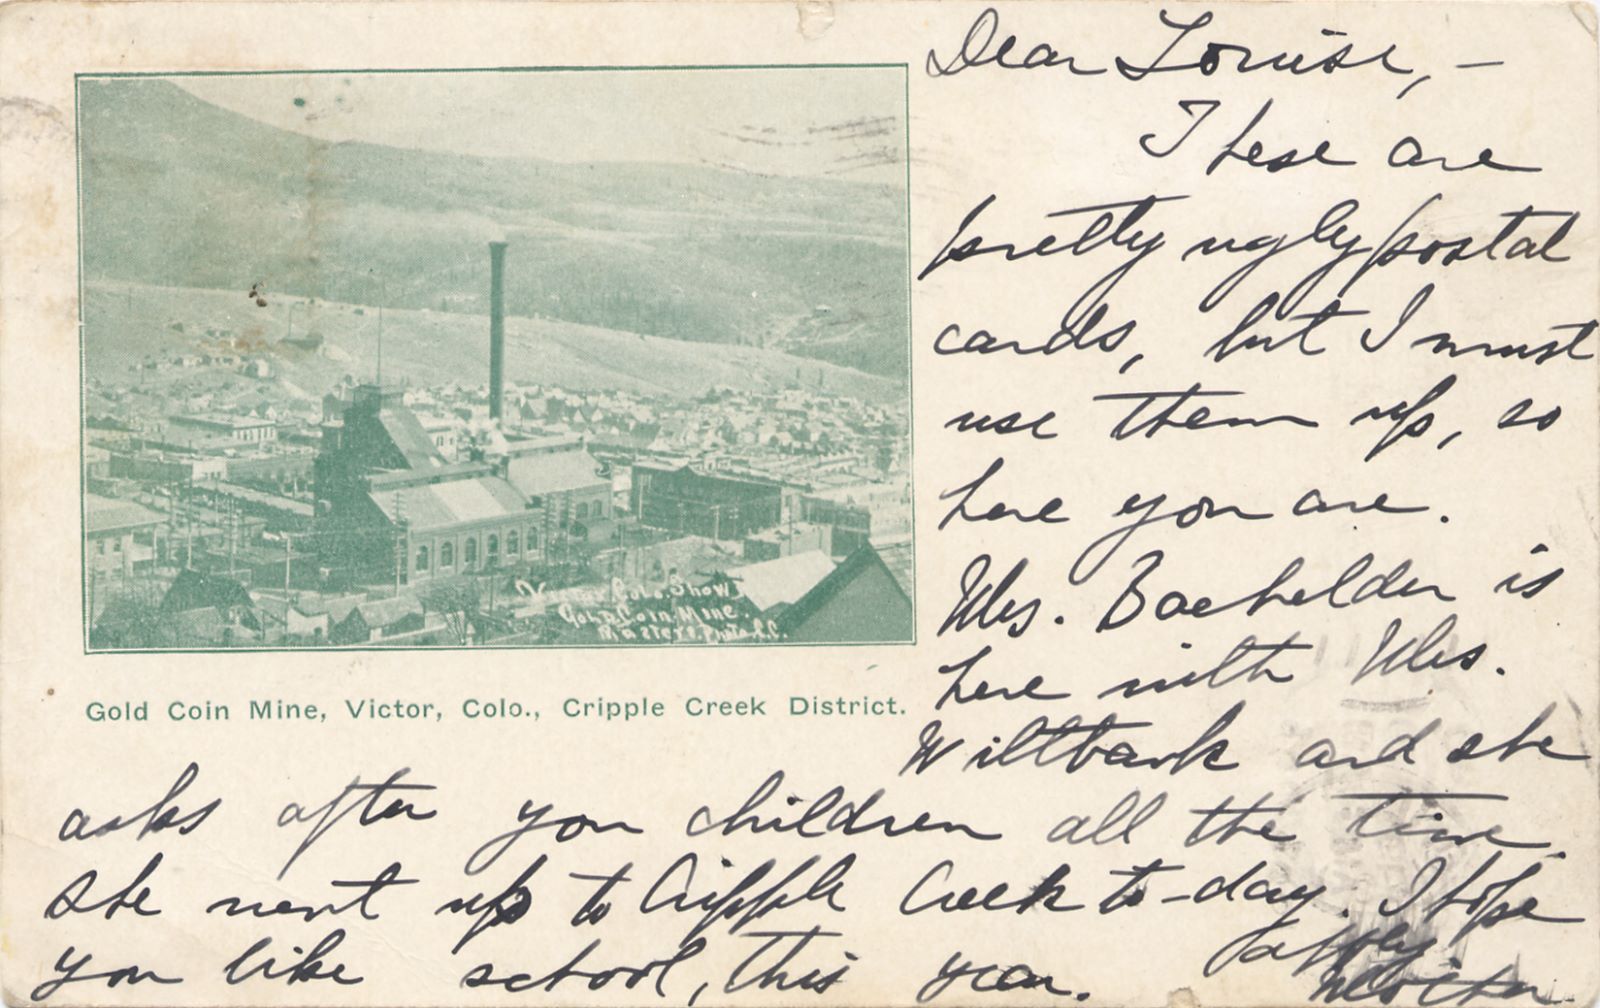 Dear Louise, –
These are
pretty ugly postal
cards, but I must
use them up, so
here you are.
Mrs. Bachelder is
here with Mrs.
Wiltbank and she
asks after you children all the time.
She went up to Cripple Creek to-day. I hope
you like school, this year.
Victor, Colo. Show'g
Gold Coin Mine.
Masters. Photo. C.C.
Gold Coin Mine, Victor, Colo., Cripple Creek District.